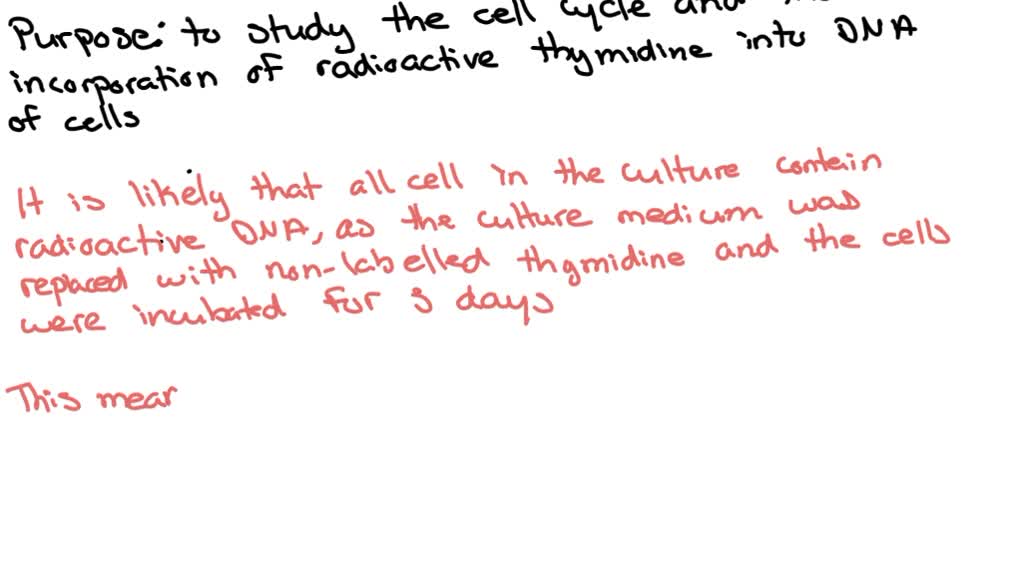 Purpose: to study the cell cycle and
incorporation of radioactive thymidine into DNA
of cells
It is likely that all cell in the culture contain
radioactive DNA, as the culture medium was
replaced with non-labelled thymidine and the cells
were incubated for 3 days
This mean